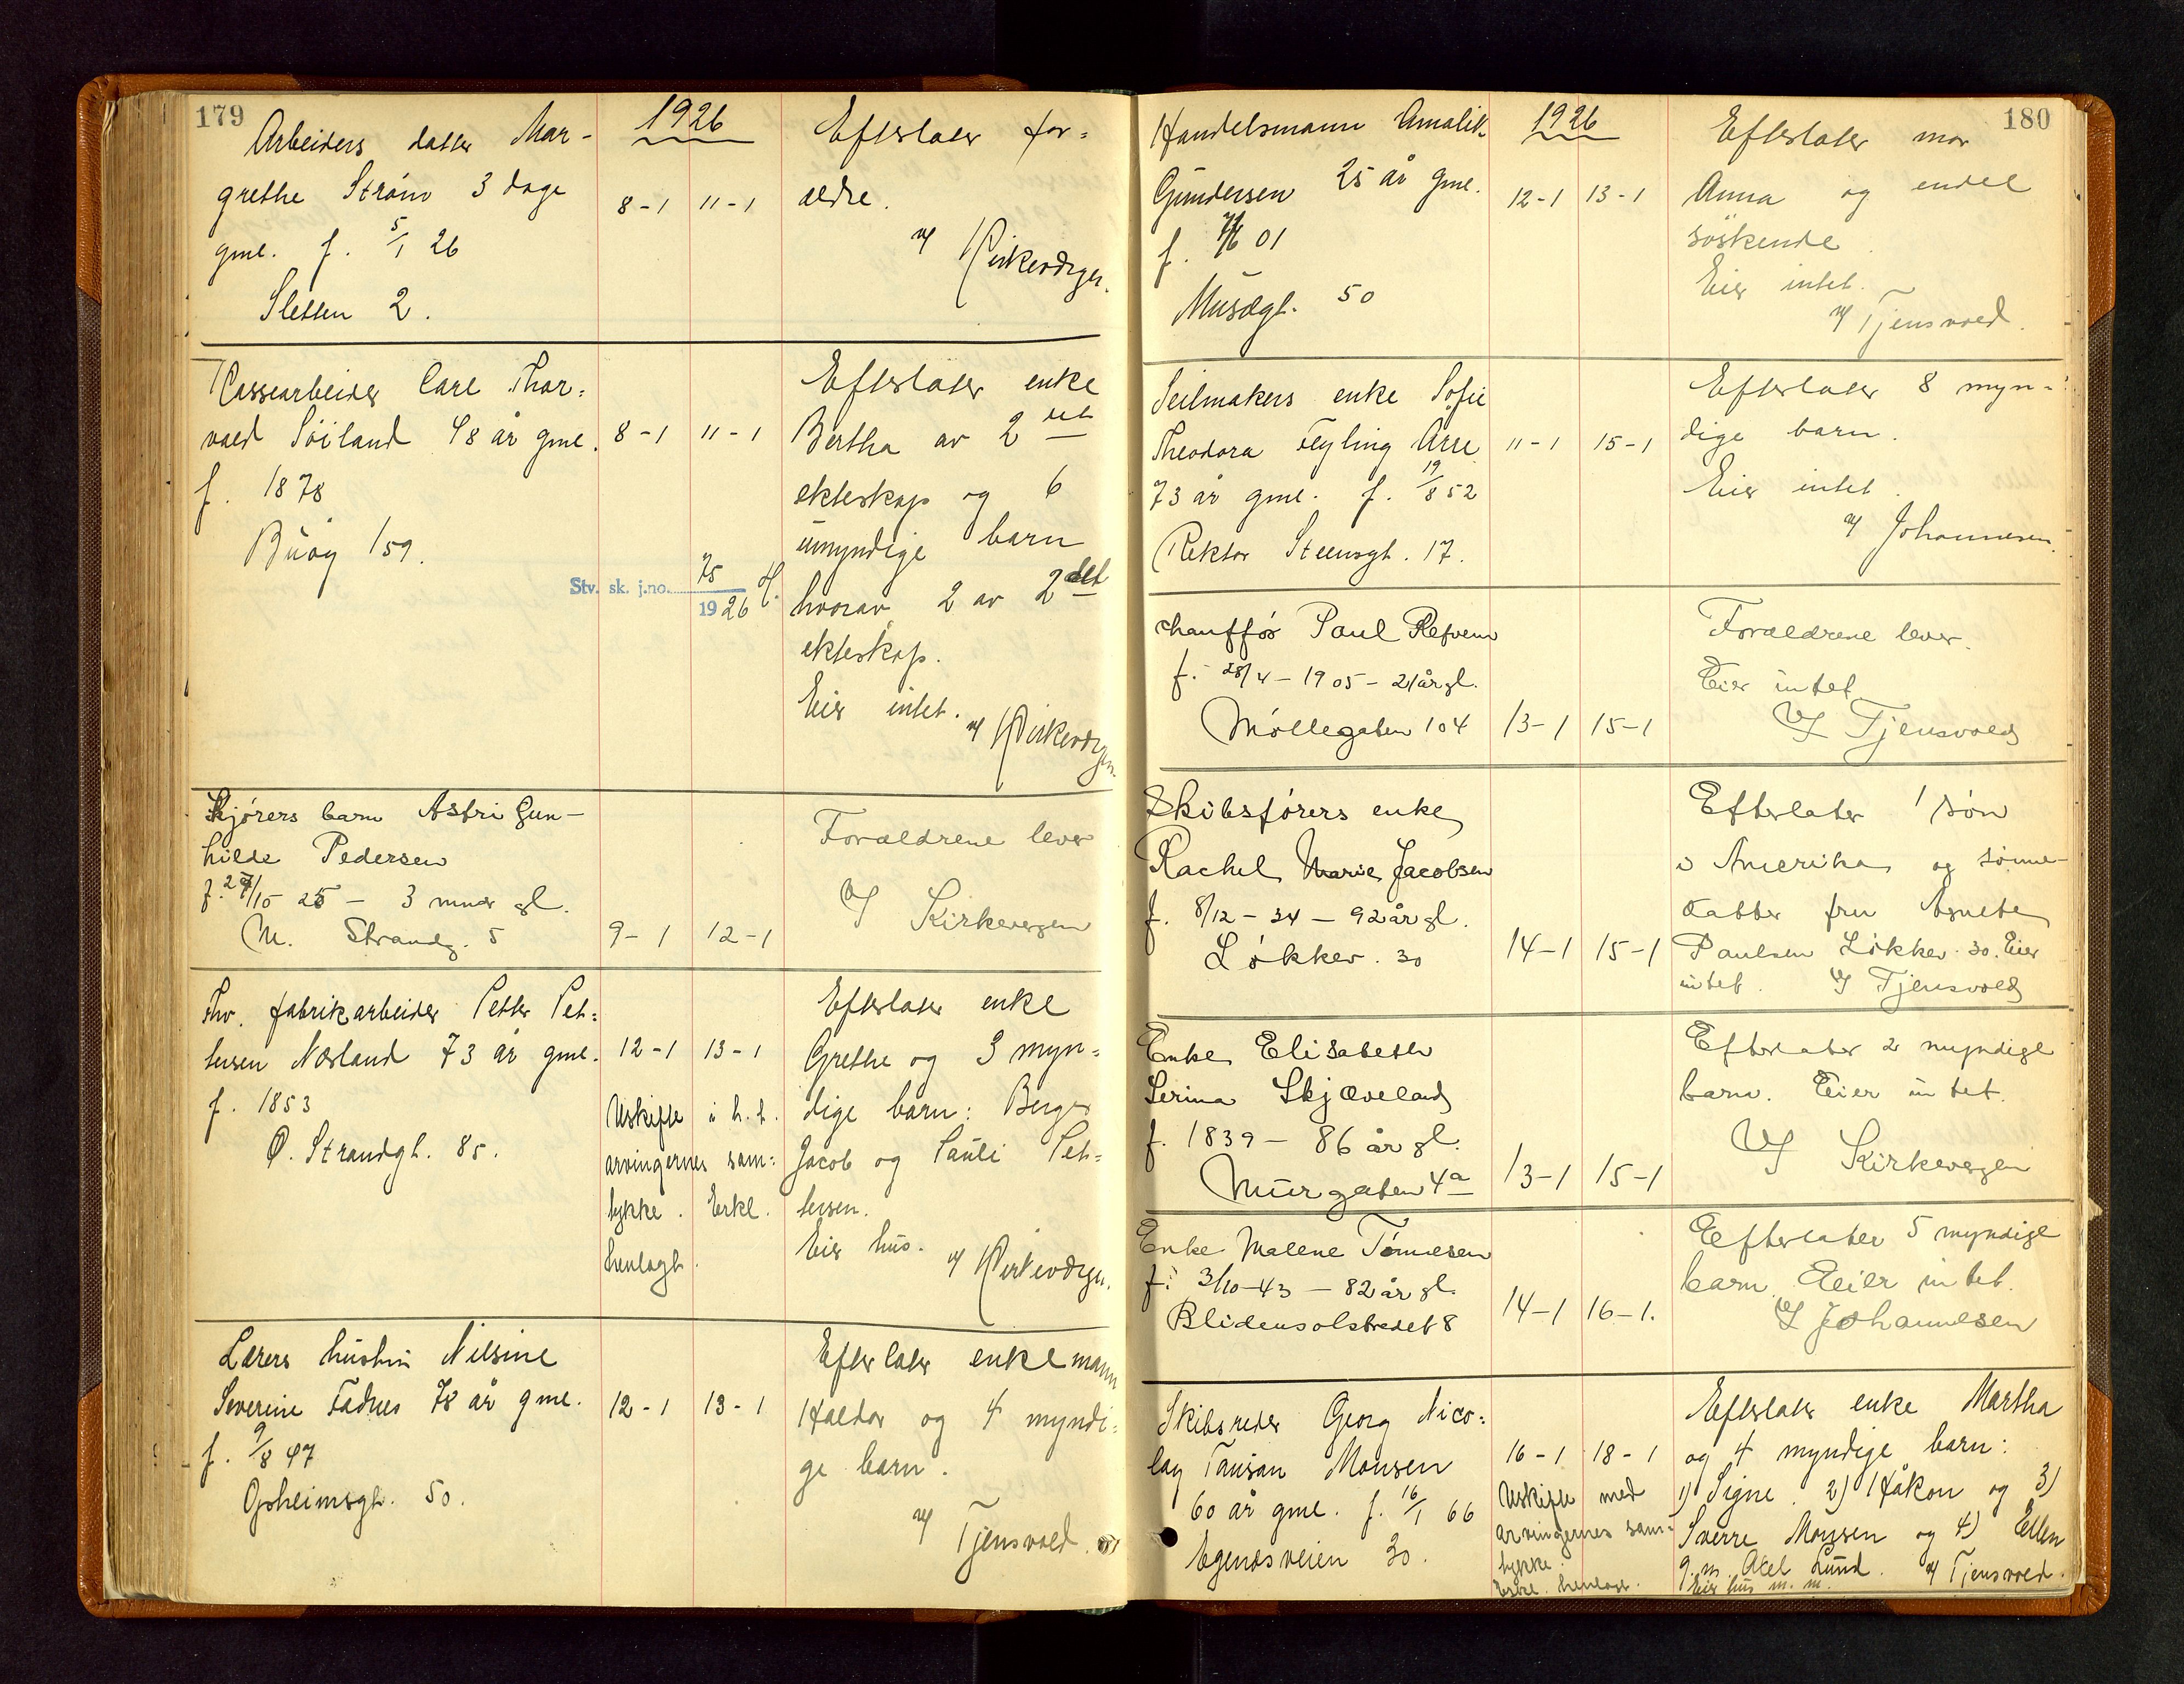 179
1926
Arbeiders datter Mar-
grethe Strøm 3 dage
gml. f. 5/1 26
Sletten 2.
8-1 11-1
Efterlater for=
ældre.
v/ Kirkevergen.
Kassearbeider Carl Thor=
vald Söiland 48 år gml.
f. 1878
Buøy 159.
8-1 11-1
Stv. sk. j.no. 75
1926
Efterlater enke
Bertha av 2det
ekteskap og 6
umyndige barn
hvorav 2 av 2det
ekteskap.
Eier intet.
v/ Kirkevergen.
Kjørers barn Astri Gun-
hilds Pedersen
f. 27/10 25 - 3 mndr gl.
N. Strandg. 5
9-1 12-1
Forældrene lever
v/ Kirkevergen
Fhv. fabrikarbeider Petter Pet=
tersen Nærland 73 år gml.
f. 1853
Ø. Strandgt. 85.
12-1 13-1
Uskifte i h. t.
arvingernes sam=
tykke. Erkl.
henlagt.
Efterlater enke
Grethe og 3 myn=
dige barn: Berger
Jacob og Pauli Pet=
tersen.
Eier hus.
v/ Kirkevergen.
Lærers hustru Nilsine
Severine Fadnes 78 år gml.
f. 9/8 47
Opheimsgt. 50.
12-1 13-1
Efterlater enkemann
Haldor og 4 myndi=
ge barn.
v/ Tjensvold.
180
1926
Handelsmann Amalik
Gundersen 25 år gml.
f. 7/6 01
Musægt. 50
12-1 13-1
Efterlater mor
Anna og endel
söskende.
Eier intet.
v/ Tjensvold.
Seilmakers enke Sofie
Theodora Feyling Årre
73 år gml. f. 19/8 52
Rektor Steensgt. 17.
11-1 15-1
Efterlater 8 myn=
dige barn.
Eier intet.
v/ Johannesen.
Chauffør Paul Refvem
f. 28/4 - 1905 - 21 år gl.
Møllegaten 104
13-1 15-1
Forældrene lever.
Eier intet
v/ Tjensvold
Skibsførers enke
Rachel Marie Jacobsen
f. 8/12 - 34 - 92 år gl.
Løkkev. 30
14-1 15-1
Efterlater 1 søn
i Amerika og sønne-
datter fru Agnete
Paulsen Løkkev. 30. Eier
intet. v/ Tjensvold
Enke Elisabeth
Serina Skjæveland
f. 1839 - 86 år gl.
Murgaten 4a
13-1 15-1
Efterlater 2 myndige
barn. Eier intet.
v/ Kirkevergen
Enke Malene Tønnesen
f. 3/10-43 - 82 år gl.
Blidensolstredet 8
14-1 16-1.
Efterlater 5 myndige
barn. Eier intet.
v/ Johannesen
Skibsreder Georg Nico=
lay Tausan Monsen
60 år gml. f. 16/1 66
Egenæsveien 30.
16-1 18-1
Uskifte med
arvingernes sam=
tykke.
Erkl. henlagt.
Efterlater enke Martha
og 4 myndige barn:
1) Signe. 2) Håkon og 3)
Sverre Monsen og 4) Ellen
g. m. Axel Lund. v/ Tjensvold.
Eier hus m. m.